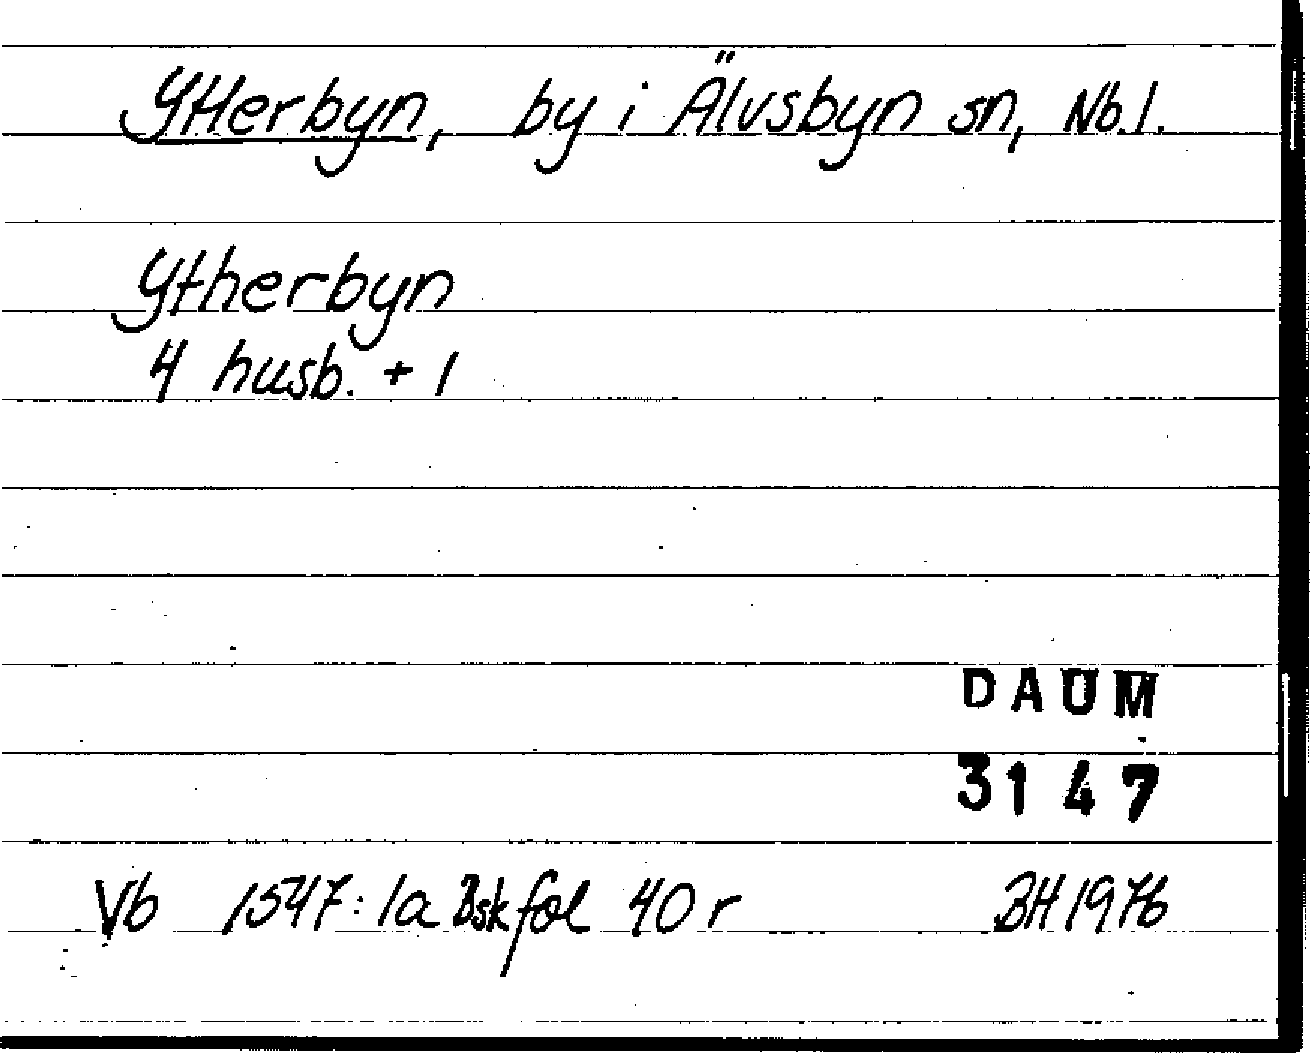 Ytterbyn, by i Älvsbyn sn, Nb.l.
Ytherbyn
4 husb. + 1
DAUM
3147
Vb 1547:1a Bsk fol 40 r BH 1976